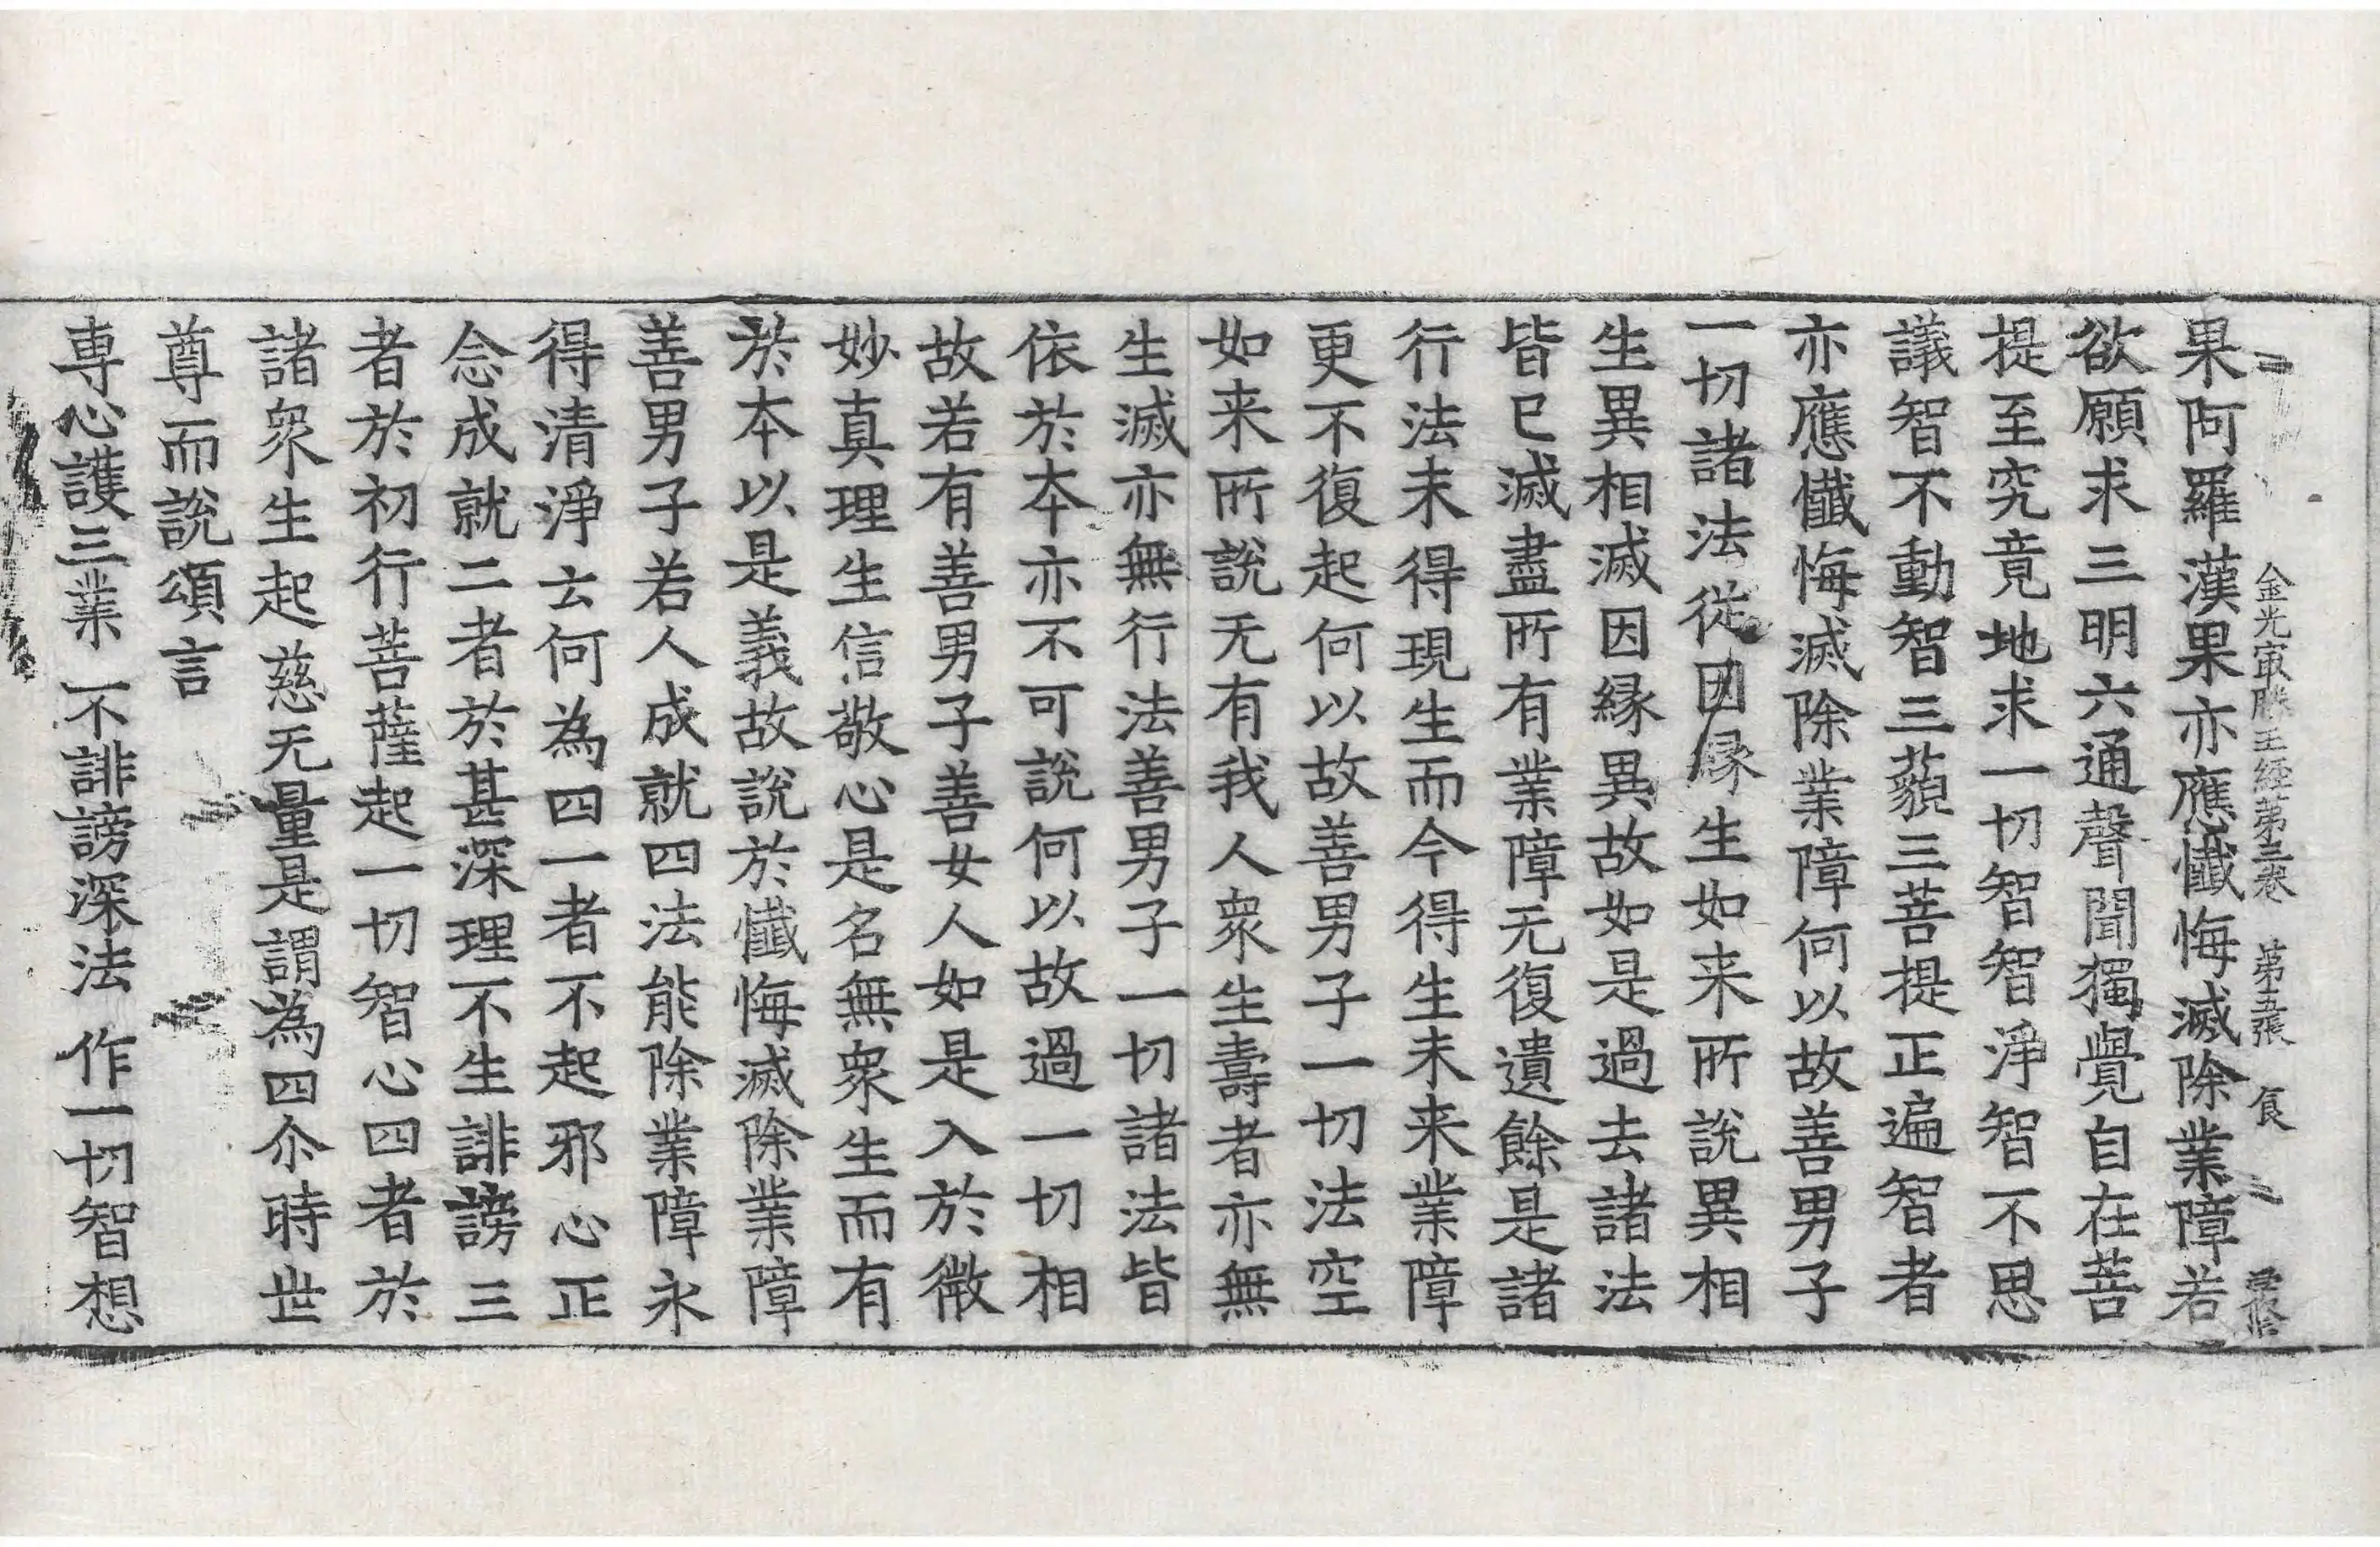 金光㝡勝王經苐三卷 苐五張 食
果阿羅漢果亦應懺悔滅除業障若
欲願求三明六通聲聞獨覺自在菩
提至究竟地求一切智智淨智不思
議智不動智三藐三菩提正遍智者
亦應懺悔滅除業障何以故善男子
一切諸法從因縁生如来所說異相
生異相滅因縁異故如是過去諸法
皆已滅盡所有業障无復遺餘是諸
行法未得現生而今得生未来業障
更不復起何以故善男子一切法空
如来所說无有我人衆生壽者亦無
生滅亦無行法善男子一切諸法皆
依於本亦不可說何以故過一切相
故若有善男子善女人如是入於微
妙真理生信敬心是名無衆生而有
於本以是義故說於懺悔滅除業障
善男子若人成就四法能除業障永
得清淨云何為四一者不起邪心正
念成就二者於甚深理不生誹謗三
者於初行菩薩起一切智心四者於
諸衆生起慈无量是謂為四尒時世
尊而說頌言
専心護三業 不誹謗深法 作一切智想